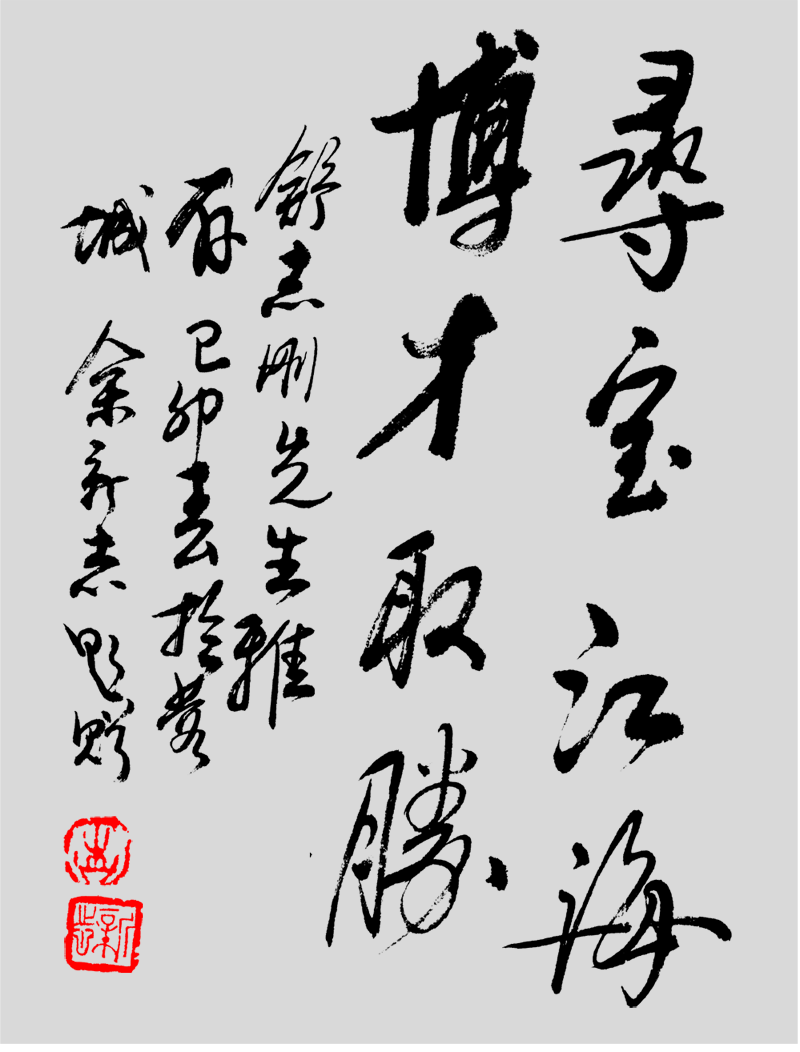 尋宝江海
博才取勝
舒志刚先生雅
存 己卯春於蓉
城 余新志题赠